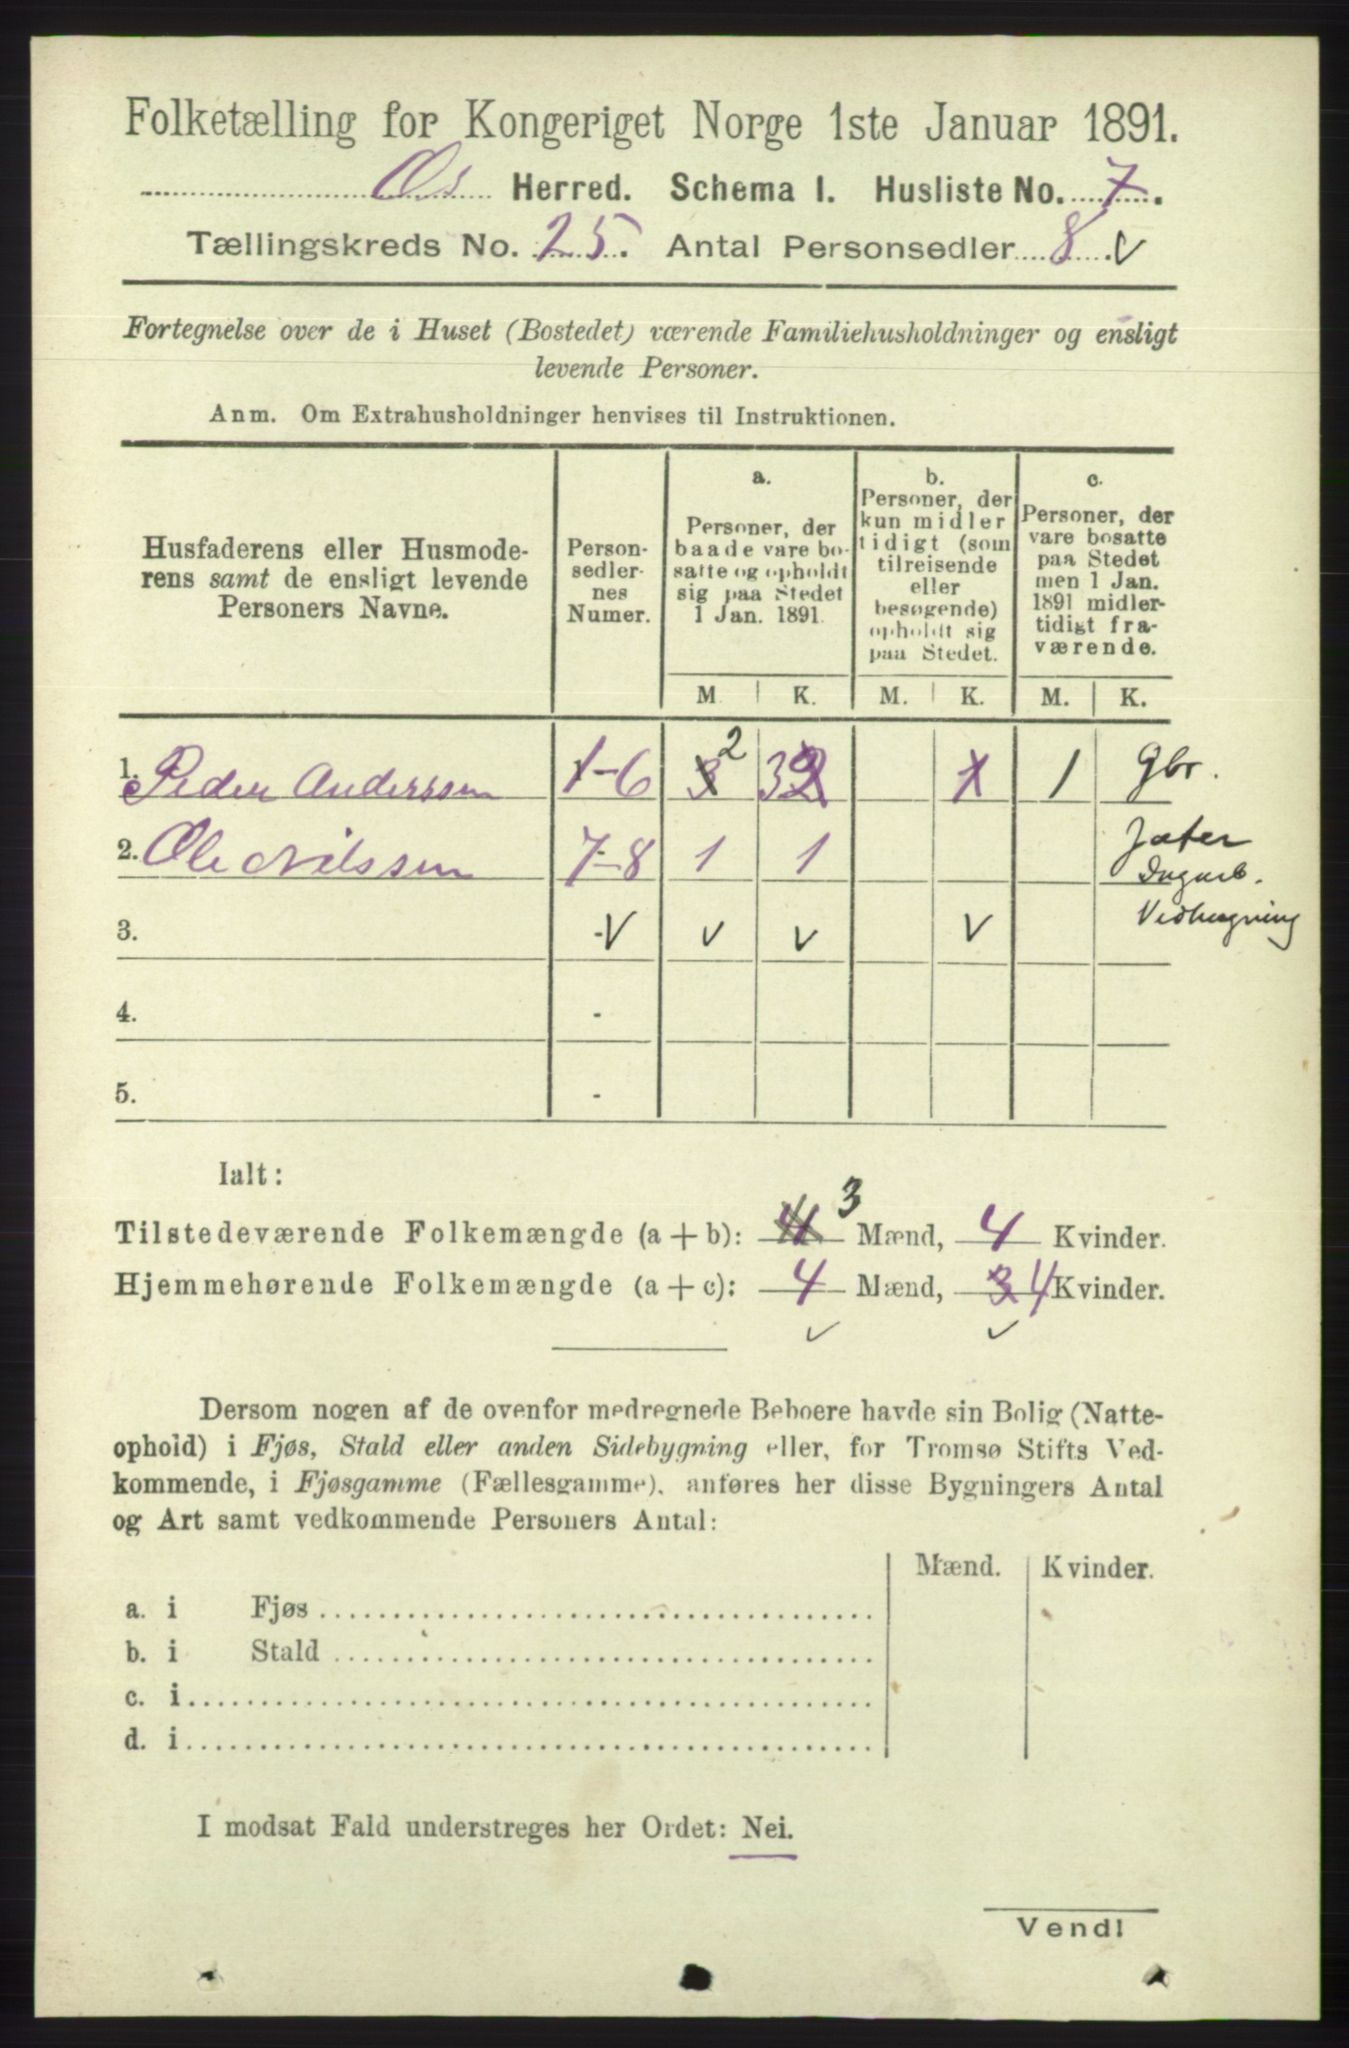 Folketælling for Kongeriget Norge 1ste Januar 1891.
Os Herred. Schema I. Husliste No. 7.
Tællingskreds No. 25. Antal Personsedler 8 v
Fortegnelse over de i Huset (Bostedet) værende Familiehusholdninger og ensligt
levende Personer.
Anm. Om Extrahusholdninger henvises til Instruktionen.
Husfaderens eller Husmode-
rens samt de ensligt levende
Personers Navne.
Person-
sedler-
nes
Numer.
a.
Personer, der
baade vare bo-
satte og opholdt
sig paa Stedet
1 Jan. 1891.
b.
Personer, der
kun midler
tidigt (som
tilreisende
eller
besøgende)
opholdt sig
paa Stedet.
c.
Personer, der
vare bosatte
paa Stedet
men 1 Jan.
1891 midler-
tidigt fra-
værende.
M. K. M. K. M. K.
1. Peder Anderssen 1-6 3 2 3 2 1 1 Gbr.
2. Ole Nilssen 7-8 1 1
3. - V v v v
4. -
5. -
Ialt:
Tilstedeværende Folkemængde (a + b): 4 3 Mænd, 4 Kvinder.
Hjemmehørende Folkemængde (a + c): 4 Mænd, 3 4 Kvinder.
v v
Dersom nogen af de ovenfor medregnede Beboere havde sin Bolig (Natte-
ophold) i Fjøs, Stald eller anden Sidebygning eller, for Tromsø Stifts Ved-
kommende, i Fjøsgamme (Fællesgamme), anføres her disse Bygningers Antal
og Art samt vedkommende Personers Antal:
Mænd. Kvinder.
a. i Fjøs
b. i Stald
c. i
d. i
I modsat Fald understreges her Ordet: Nei.
Vend!